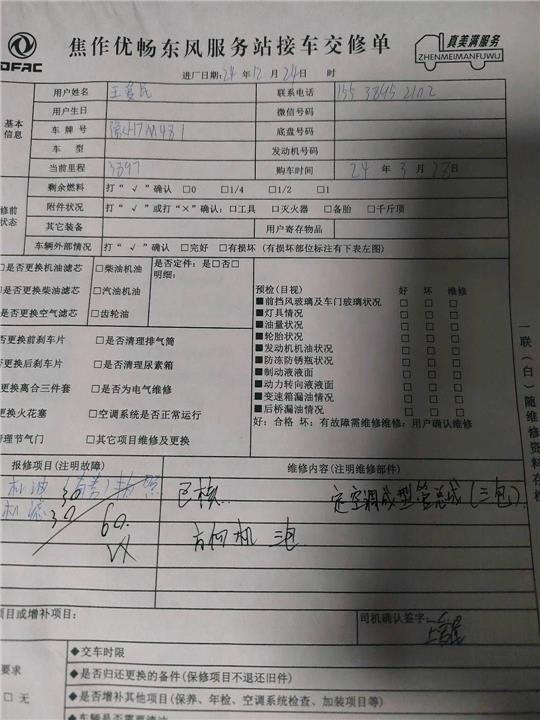 DFAC
焦作优畅东风服务站接车交修单
真美满服务
ZHENMEIMANFUWU
进厂日期:24年12月24日 时
基本信息
用户姓名 联系电话 155 3895 2102
用户生日 微信号码
车牌号 底盘号码
车型 发动机号码
当前里程 3397 购车时间 24年3月23日
修前状态
剩余燃料 打“√”确认 □0 □1/4 □1/2 □1
附件状况 打“√”或打“×”确认: □工具 □灭火器 □备胎 □千斤顶
其它装备 用户寄存物品
车辆外部情况 打“√”确认 □完好 □有损坏 (有损坏部位标注有下表左图)
□是否更换机油滤芯 □柴油机油 是否定件: 是□否□
明细:
□是否更换柴油滤芯 □汽油机油
□是否更换空气滤芯 □齿轮油
预检(目视) 好 坏 维修
■前挡风玻璃及车门玻璃状况 □ □ □
■灯具情况 □ □ □
■油量状况 □ □ □
■轮胎状况 □ □ □
■发动机机油状况 □ □ □
■防冻防锈瓶状况 □ □ □
■制动液液面 □ □ □
■动力转向液液面 □ □ □
■变速箱漏油情况 □ □ □
■后桥漏油情况 □ □ □
好: 合格 坏: 有故障需维修维修: 用户确认维修
否更换前刹车片 □是否清理排气筒
否更换后刹车片 □是否清理尿素箱
更换离合三件套 □是否为电气维修
更换火花塞 □空调系统是否正常运行
清理节气门 □其它项目维修及更换
一联(白)随维修资料存档
报修项目(注明故障) 维修内容(注明维修部件)
机油
30
已核 定空调成型管总成(三包)
机滤 30
60
方向机 三包
项目或增补项目: 司机确认签字
◆交车时限
要求
◆是否归还更换的备件(保修项目不退还旧件)
□ 无
◆是否增补其他项目(保养、年检、空调系统检查、加装项目等)
◆车辆是否需要清洁